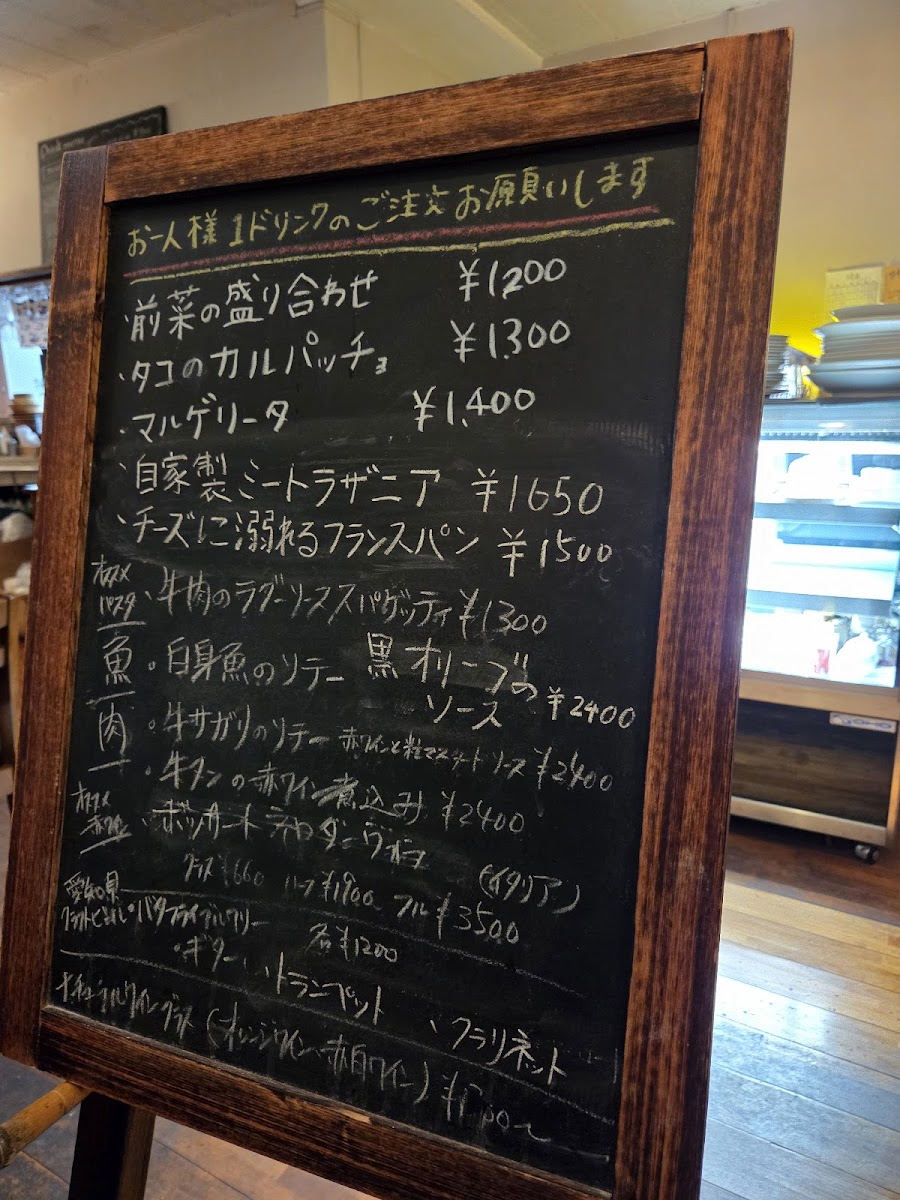 お一人様1ドリンクのご注文お願いします
・前菜の盛り合わせ ¥1,200
・タコのカルパッチョ ¥1,300
・マルゲリータ ¥1,400
・自家製ミートラザニア ¥1650
・チーズに溺れるフランスパン ¥1500
オススメパスタ ・牛肉のラグーソーススパゲッティ ¥1300
魚 ・白身魚のソテー 黒オリーブのソース ¥2400
肉 ・牛サガリのソテー 赤ワインと粒マスタードソース ¥2400
・牛タンの赤ワイン煮込み ¥2400
オススメ赤ワイン ・ボッサート
(イタリア)
グラス¥660 ハーフ¥1900 フル¥3500
愛知県クラフトビール ・バタフライブルワリー
各¥1200
・ギター ・トランペット 、クラリネット
ナチュラルワイン グラス (オレンジワイン・赤白ワイン)